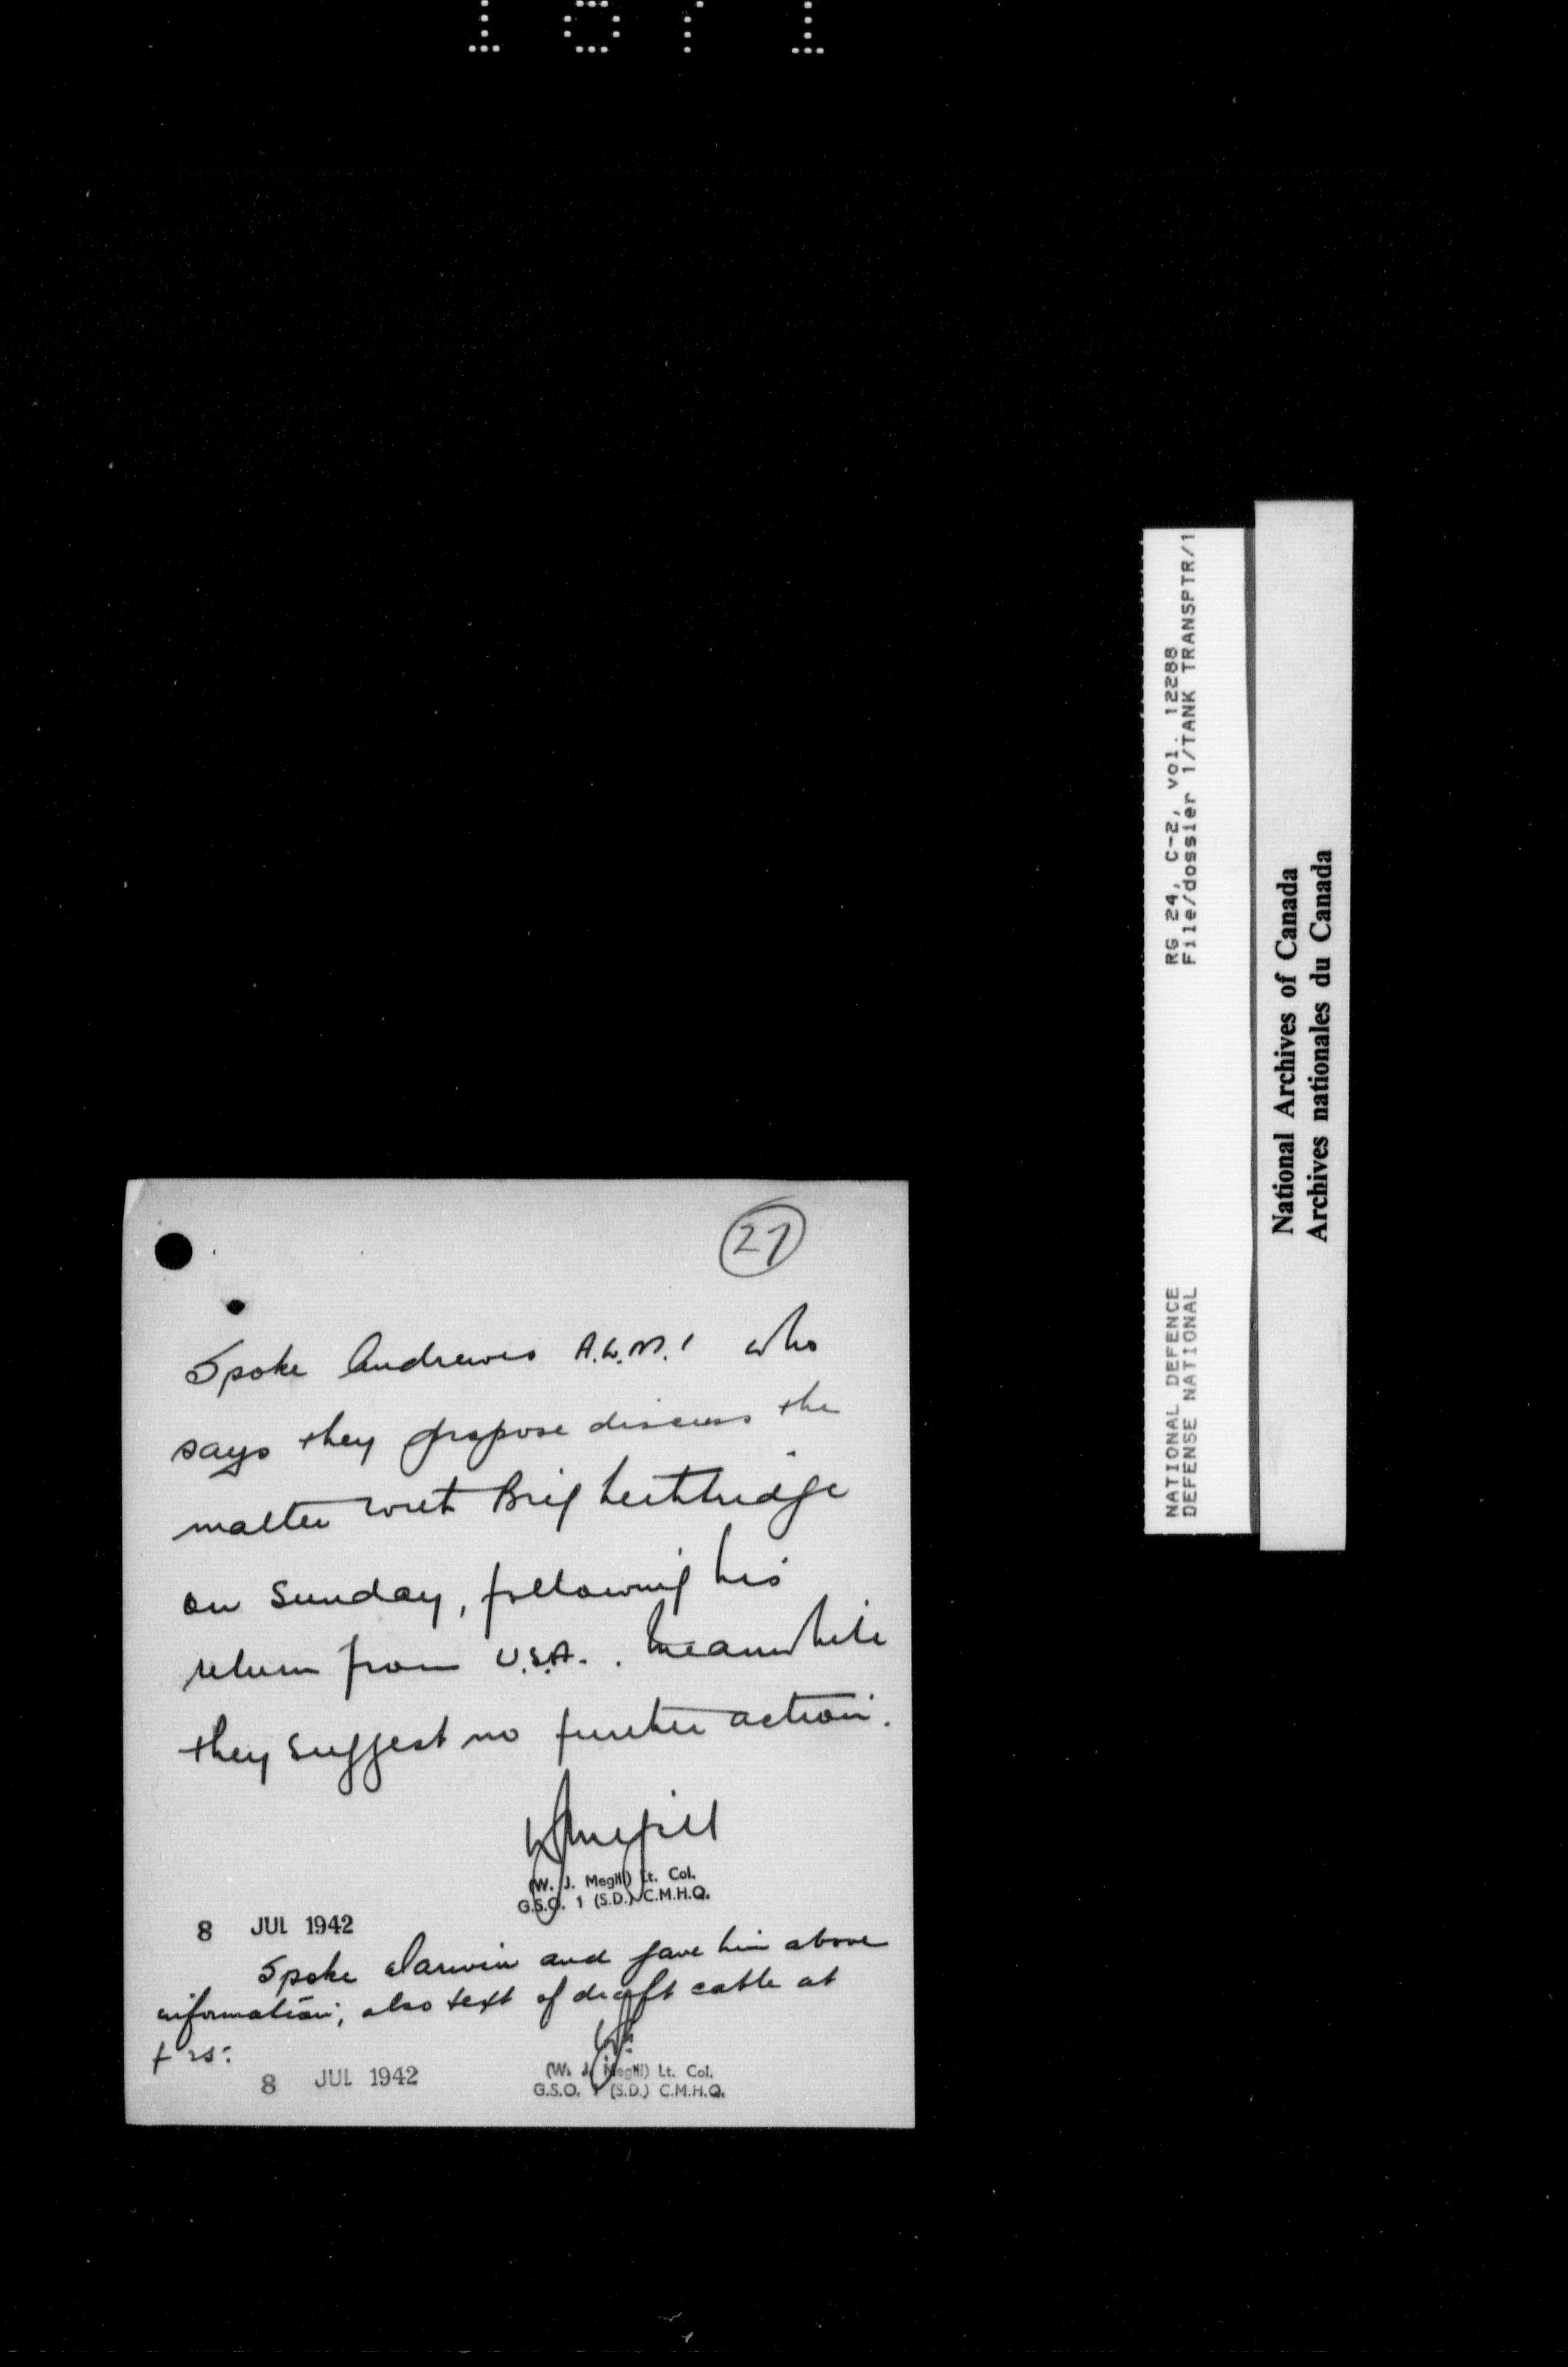 27
Spoke Andrewes who
says they propose discuss the
matter with Brig
on Sunday, following his
return from U.S.A. . Meanwhile
they suggest no further action.
WJMegill
(W. J. Megill) Lt. Col.
G.S.O. 1 (S.D.) C.M.H.Q.
8 JUL 1942
Spoke Darwin and gave him above
information; also text of draft cable at
(W. J. Megill) Lt. Col.
8 JUL 1942
G.S.O. 1 (S.D.) C.M.H.Q.
RG 24, C-2, vol. 12288
File/dossier 1/TANK TRANSPTR/1
NATIONAL DEFENCE
DEFENSE NATIONAL
National Archives of Canada
Archives nationales du Canada